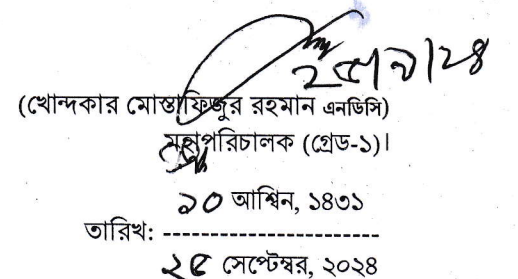 ২৫।৯।২৪
(খোন্দকার মোস্তাফিজুর রহমান এনডিসি)
মহাপরিচালক (গ্রেড-১)।
১০ আশ্বিন, ১৪৩১
তারিখ: ------------------------
২৫ সেপ্টেম্বর, ২০২৪